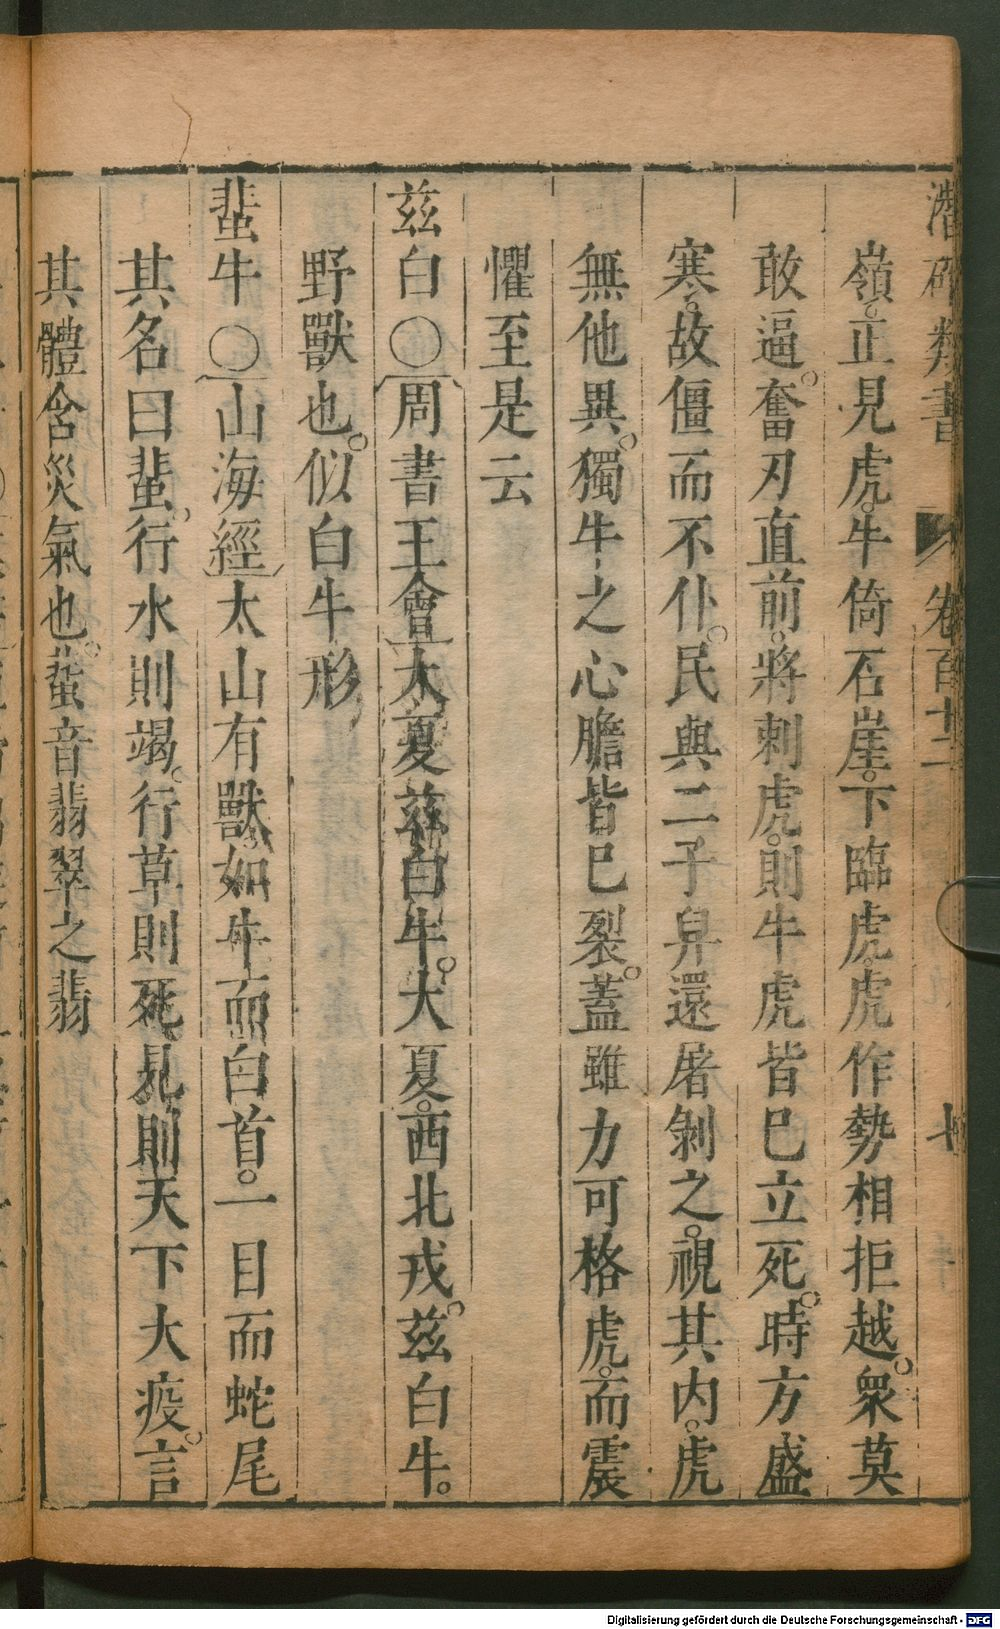 潛確類書 卷百十二 七
嶺。正見虎。牛倚石崖。下臨虎。虎作勢相拒越。衆莫
敢逼。奮刃直前。將刺虎。則牛虎皆已立死。時方盛
寒。故僵而不仆。民與二子舁還屠剝之。視其内。虎
無他異。獨牛之心膽皆已裂。蓋雖力可格虎。而震
懼至是云
茲白○周書王會大夏茲白牛。大夏。西北戎。茲白牛。
野獸也。似白牛形
蜚牛○山海經太山有獸。如牛而白首。一目而蛇尾
其名曰蜚。行水則竭。行草則死。見則天下大疫。言
其體含災氣也。蜚音翡翠之翡
Digitalisierung gefördert durch die Deutsche Forschungsgemeinschaft - DFG